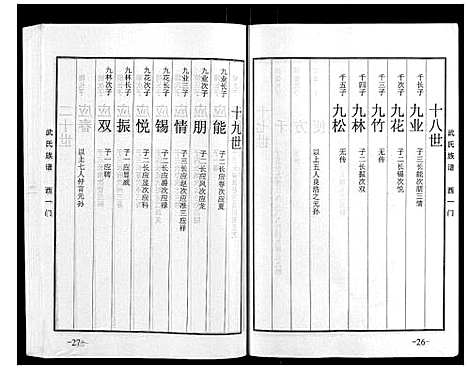 武氏族谱 西一门
十八世
千长子 九业 子三长能次朋三情
千次子 九花 子二长锡次悦
千三子 九竹 无传
千四子 九林 子二长振次双
千五子 九松 无传
以上五人良浩之元孙
-26-
十九世
九业长子 能 子二长应春次应夏
九业次子 朋 子二长应风次应龙
九业三子 情 子三长应赵次应港三应禄
九花长子 锡 子二长应爵次应禄
九花次子 悦 子二长应显次应科
九林长子 振 子一应威
九林次子 双 子一应聘
以上七人仲言元孙
武氏族谱 西一门
-27-